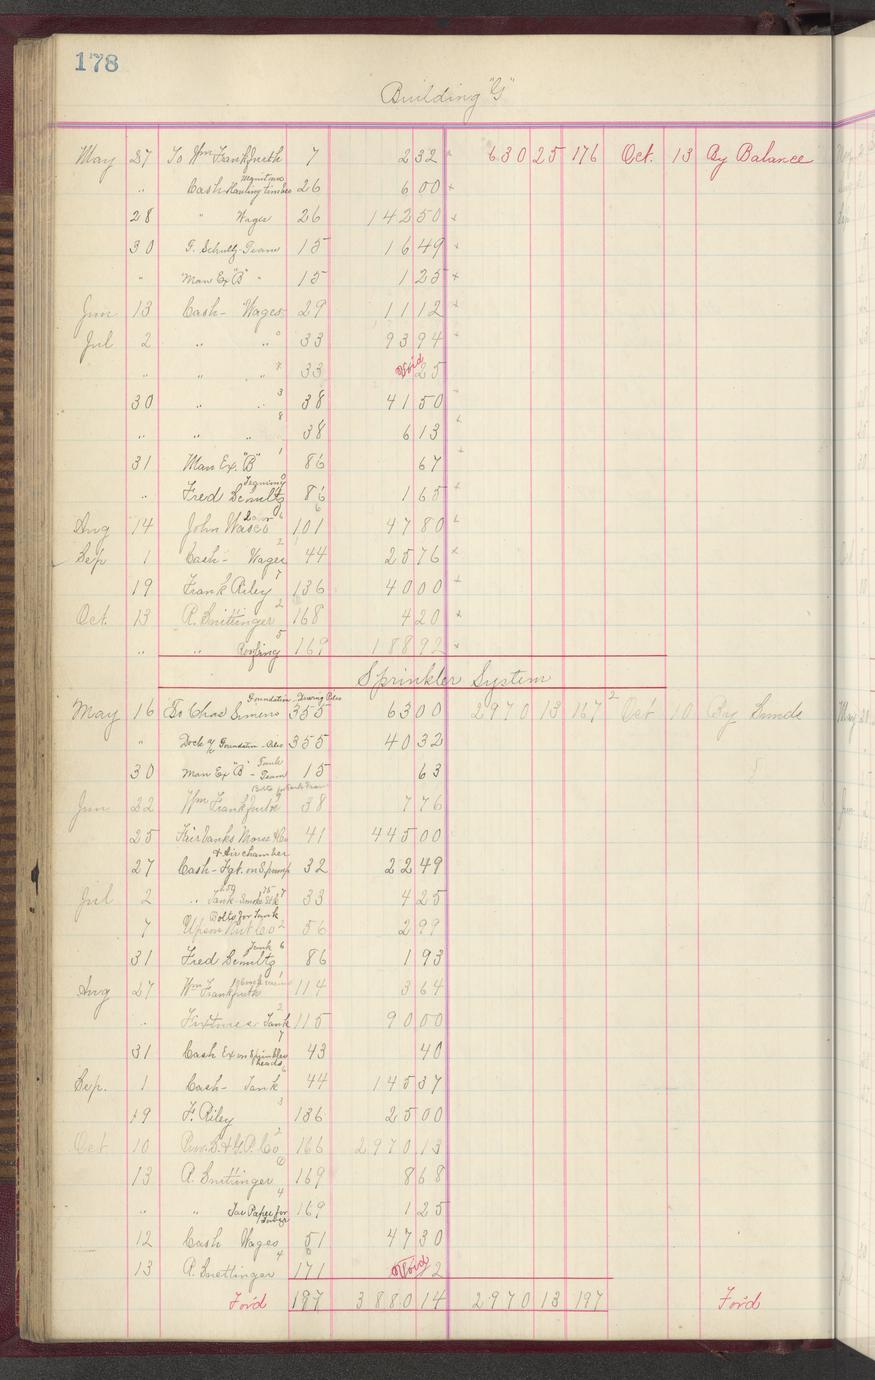 178
Building "G"
May 27 To Wm Frankfurth 7 2 32 630 25 176 Oct. 13 By Balance
" Cash Hauling timber 26 6 00
28 " Wages 26 142 50
30 F. Schultz-Team 15 16 49
" Man Ex "B" " 15 1 25
Jun 13 Cash - Wages 29 11 12
Jul 2 " " 33 93 94
" " " 33 Void 25
30 " " 38 41 50
" " " 38 6 13
31 Man Ex. "B" 86 67
" Fred Schultz 86 1 65
Aug 14 John Wasco 101 47 80
Sep 1 Cash - Wages 44 25 76
19 Frank Riley 136 40 00
Oct. 13 R. Snittinger 168 4 20
" " Roofing 169 188 92
Sprinkler System
May 16 To Chas Simens Foundation 355 63 00 2970 13 167 Oct 10 By Sunds
" Dock % Foundation - Piles 355 40 32
30 Man Ex "B" - Team Tank 15 63
Jun 22 Wm Frankfurth 38 7 76
25 Fairbanks Morse & Co 41 445 00
& Air chamber
27 Cash - Fgt. on S pump 32 22 49
Jul 2 " Tank - Smoke Stk 33 4 25
Bolts for Tank
7 Upson Nut Co 56 2 99
31 Fred Schultz Tank 86 1 93
Aug 27 Wm Frankfurth 114 3 64
" Fixtures Tank 115 90 00
31 Cash Ex on Sprinkler heads 43 40
Sep. 1 Cash - Tank 44 145 37
19 F. Riley 136 25 00
Oct 10 166 2970 13
13 A. Snittinger 169 8 68
" " Tar Paper for 169 1 25
12 Cash Wages 51 47 30
13 A. Snettinger 171 Void 2
For'd 197 3880 14 2970 13 197 For'd